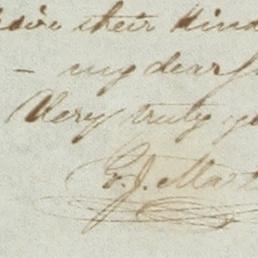 their kind
- my dear
Very truly y
G. J. Mart